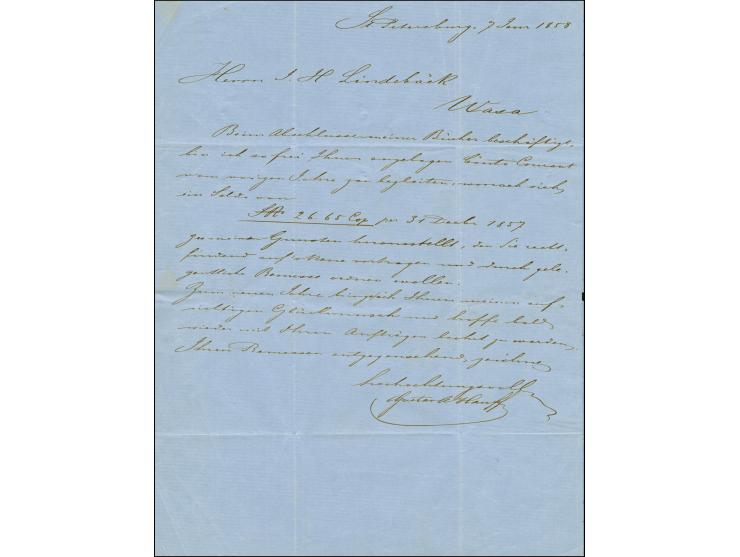 St Petersburg. 7 Janr 1858
Herrn I. H Lindebäck
Wasa
Beim Abschlusse meiner Bücher beschäftigt,
bin ich so frei Ihnen Conto Courant
vom vorigen Jahre zu begleiten, wonach sich
ein Saldo von
26.65 Cop per 31 Decbr 1857
zu meinen Gunsten herausstellt, den Sie recht-
findend auf Neue vortragen und durch gele-
gentliche Remesse ordnen wollen.
Zum neuen Jahre bringe ich Ihnen meinen auf-
richtigen Glückwunsch und hoffe bald
wieder mit Ihren Aufträgen beehrt zu werden,
Ihren Remessen entgegensehend, zeichne
hochachtungsvoll